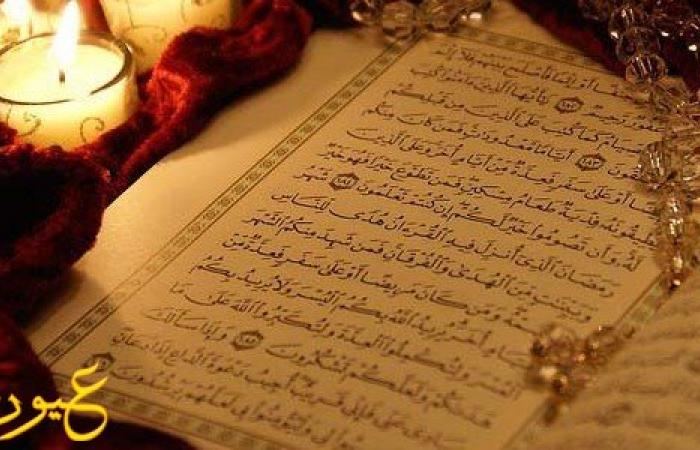 فَأَصْلَحَ بَيْنَهُمْ فَلَآ إِثْمَ
غَفُورٌ رَّحِيمٌ ١٨٢ يَٰٓأَيُّهَا ٱلَّذِينَ ءَامَنُوا۟ كُتِبَ
كَمَا كُتِبَ عَلَى ٱلَّذِينَ مِن قَبْلِكُمْ
١٨٣ أَيَّامًا مَّعْدُودَٰتٍ فَمَن كَانَ مِنكُم
أَوْ عَلَىٰ سَفَرٍ فَعِدَّةٌ مِّنْ أَيَّامٍ أُخَرَ وَعَلَى ٱلَّذِينَ
يُطِيقُونَهُۥ فِدْيَةٌ طَعَامُ مِسْكِينٍ فَمَن تَطَوَّعَ خَيْرًا فَهُوَ خَيْرٌ
لَّهُۥ وَأَن تَصُومُوا۟ خَيْرٌ لَّكُمْ إِن كُنتُمْ تَعْلَمُونَ ١٨٤ شَهْرُ
رَمَضَانَ ٱلَّذِىٓ أُنزِلَ فِيهِ ٱلْقُرْءَانُ هُدًى لِّلنَّاسِ
وَبَيِّنَٰتٍ مِّنَ ٱلْهُدَىٰ وَٱلْفُرْقَانِ فَمَن شَهِدَ مِنكُمُ ٱلشَّهْرَ
وَمَن كَانَ مَرِيضًا أَوْ عَلَىٰ سَفَرٍ فَعِدَّةٌ مِّنْ
أُخَرَ يُرِيدُ ٱللَّهُ بِكُمُ ٱلْيُسْرَ وَلَا يُرِيدُ بِكُمُ
ٱلْعُسْرَ وَلِتُكْمِلُوا۟ ٱلْعِدَّةَ وَلِتُكَبِّرُوا۟ ٱللَّهَ عَلَىٰ مَا
هَدَىٰكُمْ وَلَعَلَّكُمْ تَشْكُرُونَ ١٨٥ وَإِذَا سَأَلَكَ
عِبَادِى عَنِّى فَإِنِّى قَرِيبٌ أُجِيبُ دَعْوَةَ ٱلدَّاعِ إِذَا دَعَانِ
لِى وَلْيُؤْمِنُوا۟ بِى لَعَلَّهُمْ يَرْشُدُونَ
عيون